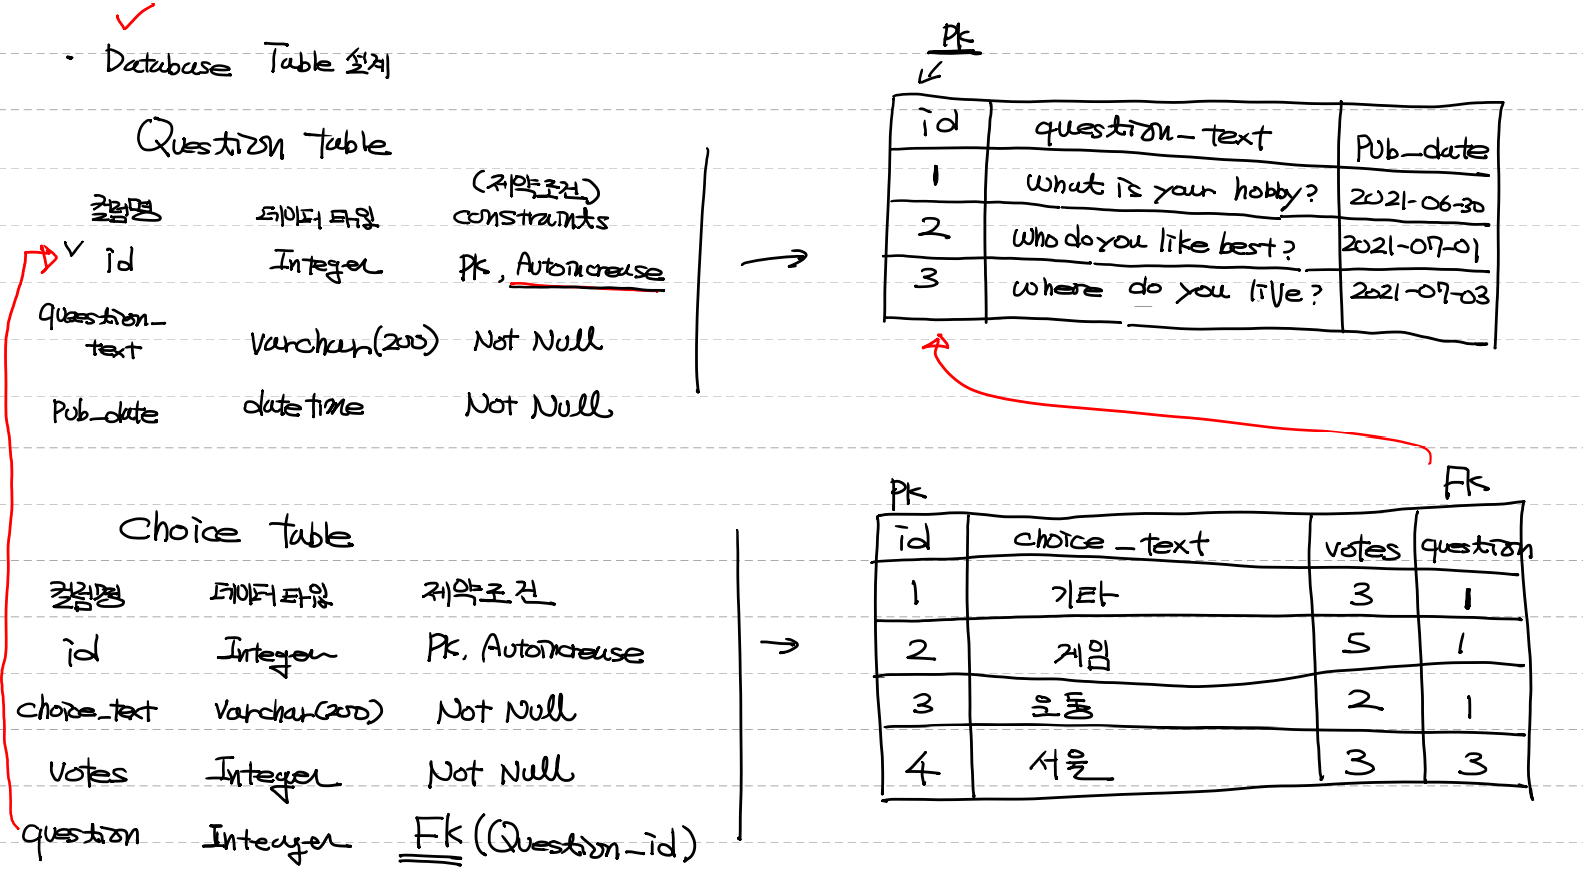 · Database Table 설계
Question Table
(제약조건)
컬럼명 데이터 타입 constraints
id Integer PK, Autoincrease
question_
text varchar(200) Not Null
Pub_date datetime Not Null
PK
id question_text Pub_date
1 What is your hobby? 2021-06-30
2 Who do you like best? 2021-07-01
3 Where do you live? 2021-07-03
Choice Table
컬럼명 데이터 타입 제약조건
id Integer PK, Autoincrease
choice_text varchar(200) Not Null
votes Integer Not Null
question Integer FK (Question_id)
PK FK
id choice_text votes question
1 기타 3 1
2 게임 5 1
3 운동 2 1
4 서울 3 3